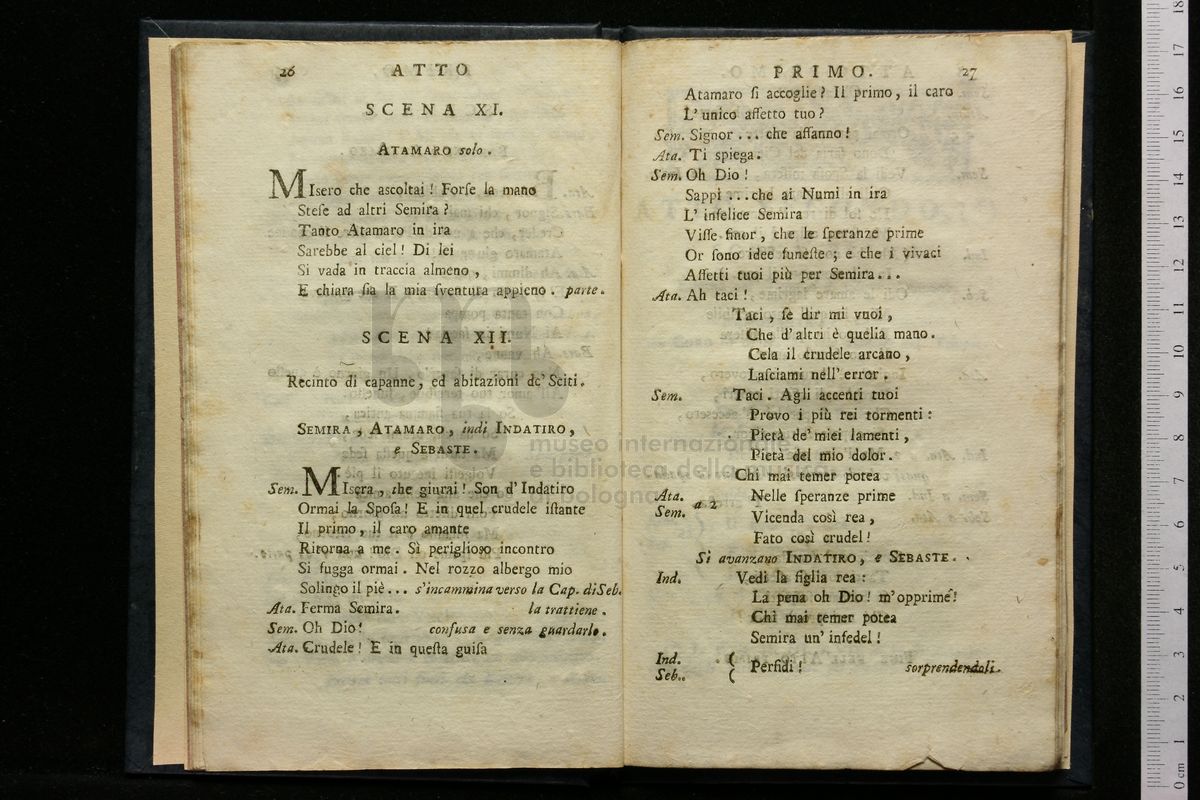 26 ATTO
SCENA XI.
ATAMARO solo.
MIsero che ascoltai! Forſe la mano
Steſe ad altri Semira?
Tanto Atamaro in ira
Sarebbe al ciel! Di lei
Si vada in traccia almeno,
E chiara ſia la mia ſventura appieno. parte.
SCENA XII.
Recinto di capanne, ed abitazioni de' Sciti.
SEMIRA, ATAMARO, indi INDATIRO,
e SEBASTE.
Sem. MIsera, che giurai! Son d' Indatiro
Ormai la Spoſa! E in quel crudele iſtante
Il primo, il caro amante
Ritorna a me. Sì periglioso incontro
Si fugga ormai. Nel rozzo albergo mio
Solingo il piè... s'incammina verso la Cap. di Seb.
Ata. Ferma Semira. la trattiene.
Sem. Oh Dio! confusa e senza guardarlo.
Ata. Crudele! E in queſta guiſa
PRIMO. 27
Atamaro ſi accoglie? Il primo, il caro
L' unico affetto tuo?
Sem. Signor... che affanno!
Ata. Ti spiega.
Sem. Oh Dio!
Sappi... che ai Numi in ira
L' infelice Semira
Viſſe finor, che le ſperanze prime
Or ſono idee funeſte; e che i vivaci
Affetti tuoi più per Semira...
Ata. Ah taci!
Taci, ſe dir mi vuoi,
Che d' altri è quella mano.
Cela il crudele arcano,
Laſciami nell' error.
Sem. Taci. Agli accenti tuoi
Provo i più rei tormenti:
Pietà de' miei lamenti,
Pietà del mio dolor.
Chi mai temer potea
Ata. Sem. a 2 Nelle ſperanze prime
Vicenda così rea,
Fato così crudel!
Si avanzano INDATIRO, e SEBASTE.
Ind. Vedi la figlia rea:
La pena oh Dio! m'opprime!
Chi mai temer potea
Semira un' infedel!
Ind. Seb. { Perfidi! sorprendendoli.
museo internazionale
e biblioteca della musica
bologna
18
17
16
15
14
13
12
11
10
9
8
7
6
5
4
3
2
1
0 cm